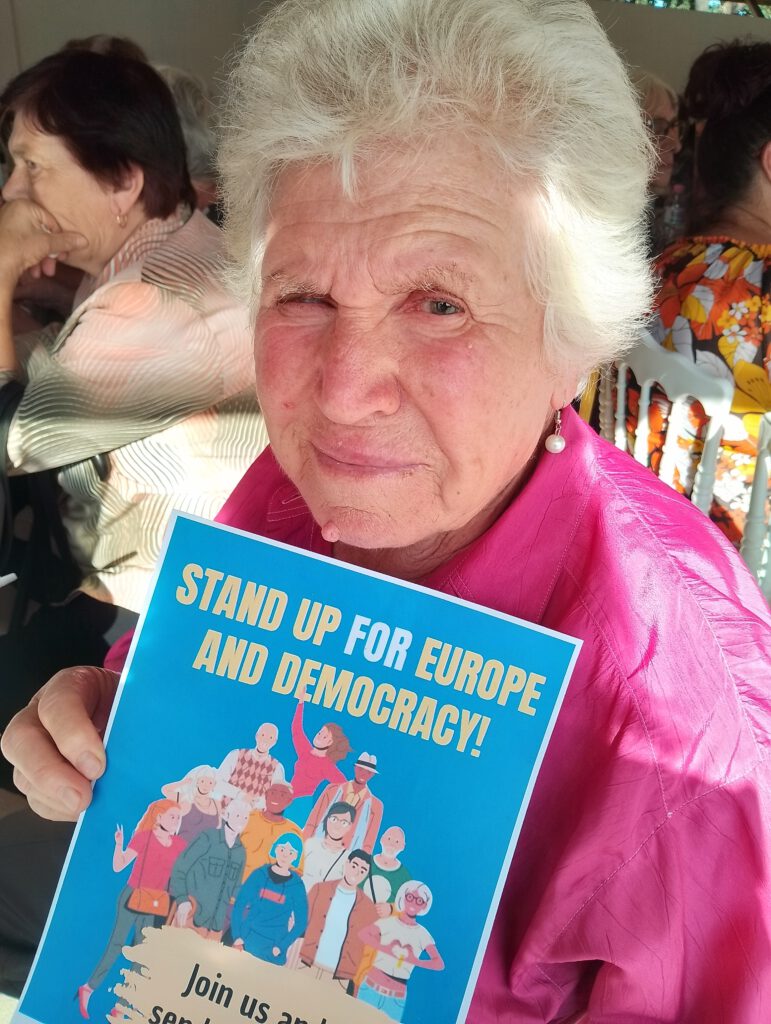 STAND UP FOR EUROPE
AND DEMOCRACY!
Join us